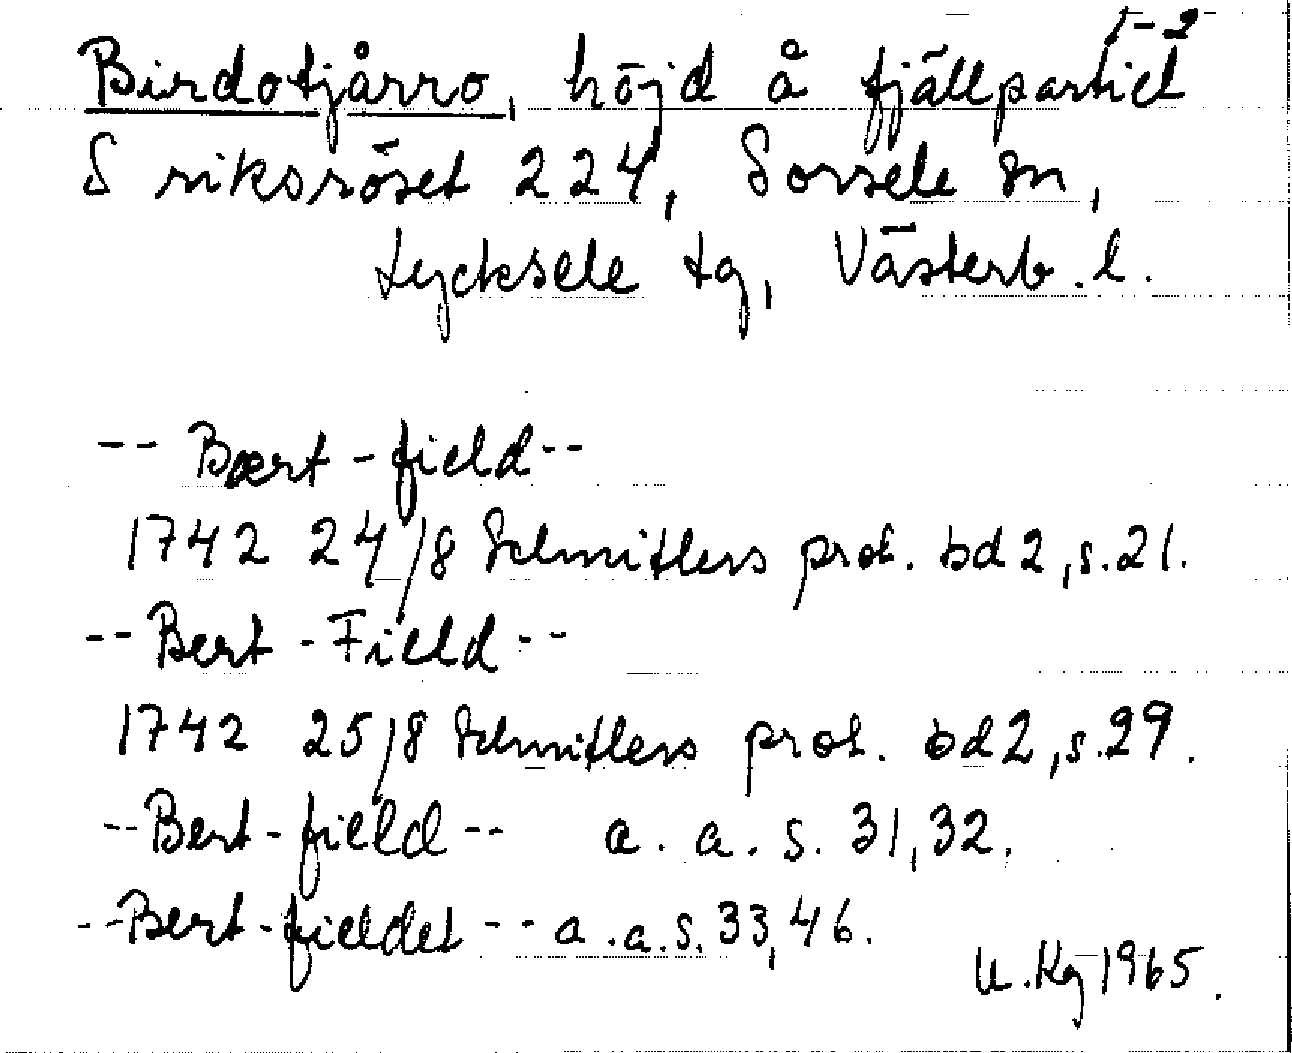 1-2
Birdotjårro, höjd å fjällpartiet
S riksröset 224, Sorsele sn,
Lycksele tg, Västerb. l.
-- Bært - field --
1742 24/8 Schnitlers prot. bd 2, s. 21.
-- Bert - Field --
1742 25/8 Schnitlers prot. bd 2, s. 29.
-- Bert - field -- a. a. s. 31, 32.
-- Bert - fieldet -- a. a. s. 33, 46.
U. Kg 1965.